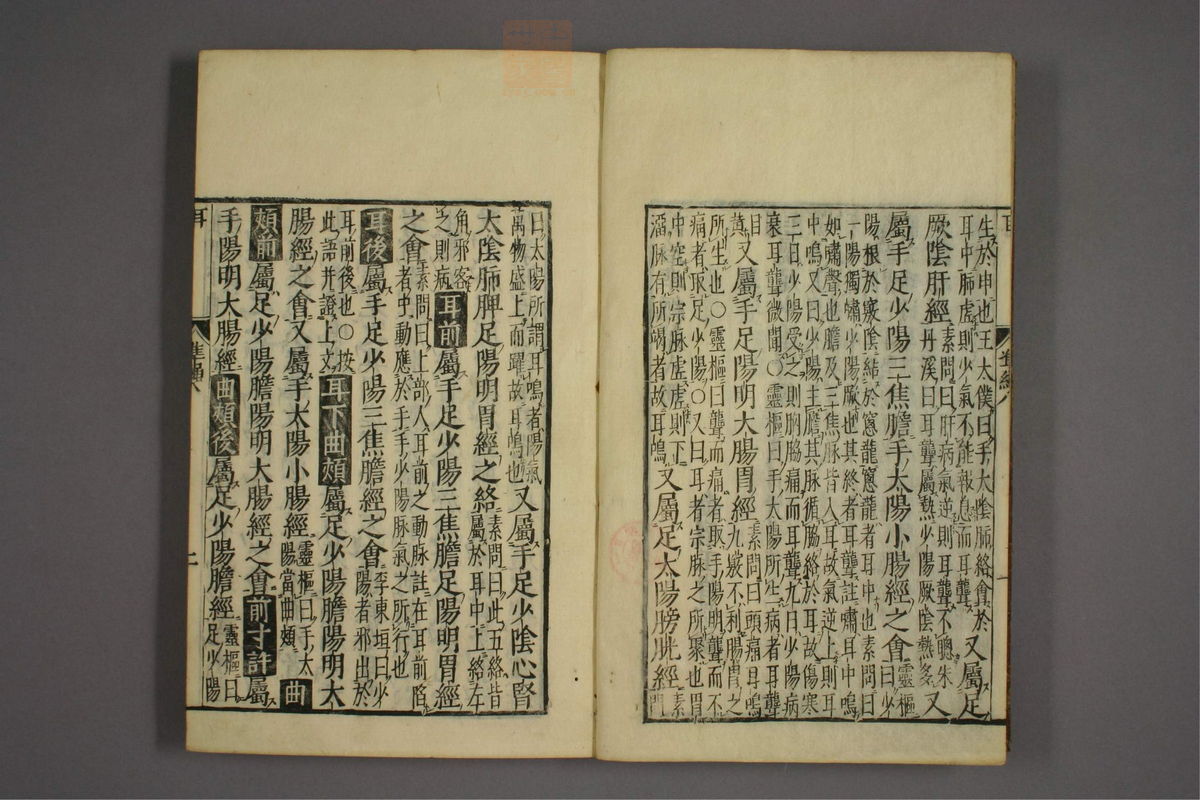 生於申也王太僕曰手大陰脈絡會於
耳中肺虛則少氣不能報息而耳聾又屬足
厥陰肝經素問曰肝病氣逆則耳聾不聰朱
丹溪曰耳聾屬熱少陽厥陰熱多又
屬手足少陽三焦膽手太陽小腸經之會靈樞曰少
陽根於竅陰結於窻籠窻籠者耳中也素問曰
一陽獨嘯少陽厥也其終者耳聾註嘯耳中鳴
如嘯聲也膽及三焦脈皆入耳故氣逆上則耳
中鳴又曰少陽主膽其脈循脇絡於耳故傷寒
三日少陽受之則胸脇痛而耳聾九日少陽病
衰耳聾微聞○靈樞曰手太陽所生病者耳聾
目黃又屬手足陽明大腸胃經素問曰頭痛耳鳴
九竅不利腸胃之
所生也○靈樞曰聾而痛者取手陽明聾而不
痛者取足少陽○又曰耳者宗脈之所聚也胃
中空則宗脈虛虛則下
溜脈有所竭者故耳鳴又屬足太陽膀胱經素
問
曰太陽所謂耳鳴者陽氣
萬物盛上而躍故耳鳴也又屬手足少陰心腎
太陰肺脾足陽明胃經之絡素問曰此五絡皆
屬於耳中上絡左
角邪客
之則病耳前屬手足少陽三焦膽足陽明胃經
之會素問曰上部人耳前之動脈註在耳前陷
者中動應於手手少陽脈氣之所行也
耳後屬手足少陽三焦膽經之會李東垣曰少
陽者邪出於
耳前後也○按
此語并證上文耳下曲頰屬足少陽膽陽明大
腸經之會又屬手太陽小腸經靈樞曰手太
陽當曲頰曲
頰前屬足少陽膽陽明大腸經之會前寸許屬
手陽明大腸經曲頰後屬足少陽膽經靈樞曰
足少陽
耳
準繩八
一
二